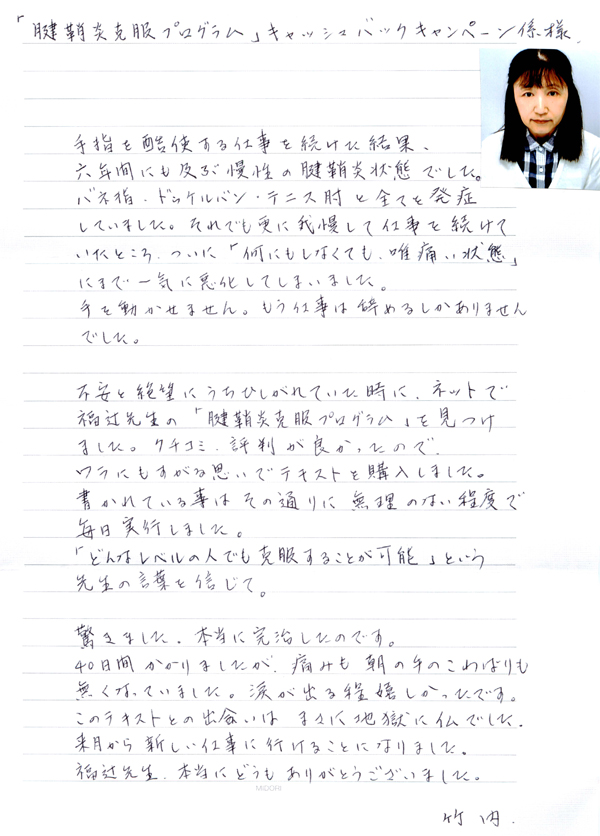 「腱鞘炎克服プログラム」キャッシュバックキャンペーン係様.
手指を酷使する仕事を続けた結果、
六年間にも及ぶ慢性の腱鞘炎状態でした。
バネ指・ドゥケルバン・テニス肘と全てを発症
していました。それでも更に我慢して仕事を続けて
いたところ、ついに「何にもしなくても、唯痛い状態」
にまで一気に悪化してしまいました。
手を動かせません。もう仕事は辞めるしかありません
でした。
不安と絶望にうちひしがれていた時に、ネットで
福辻先生の「腱鞘炎克服プログラム」を見つけ
ました。クチコミ、評判が良かったので、
ワラにもすがる思いでテキストを購入しました。
書かれている事はその通りに無理のない程度で
毎日実行しました。
「どんなレベルの人でも克服することが可能」という
先生の言葉を信じて。
驚きました、本当に完治したのです。
40日間かかりましたが、痛みも朝の手のこわばりも
無くなっていました。涙が出る程嬉しかったです。
このテキストとの出会いはまさに地獄に仏でした.
来月から新しい仕事に行けることになりました。
福辻先生、本当にどうもありがとうございました。
MIDORI
竹内.